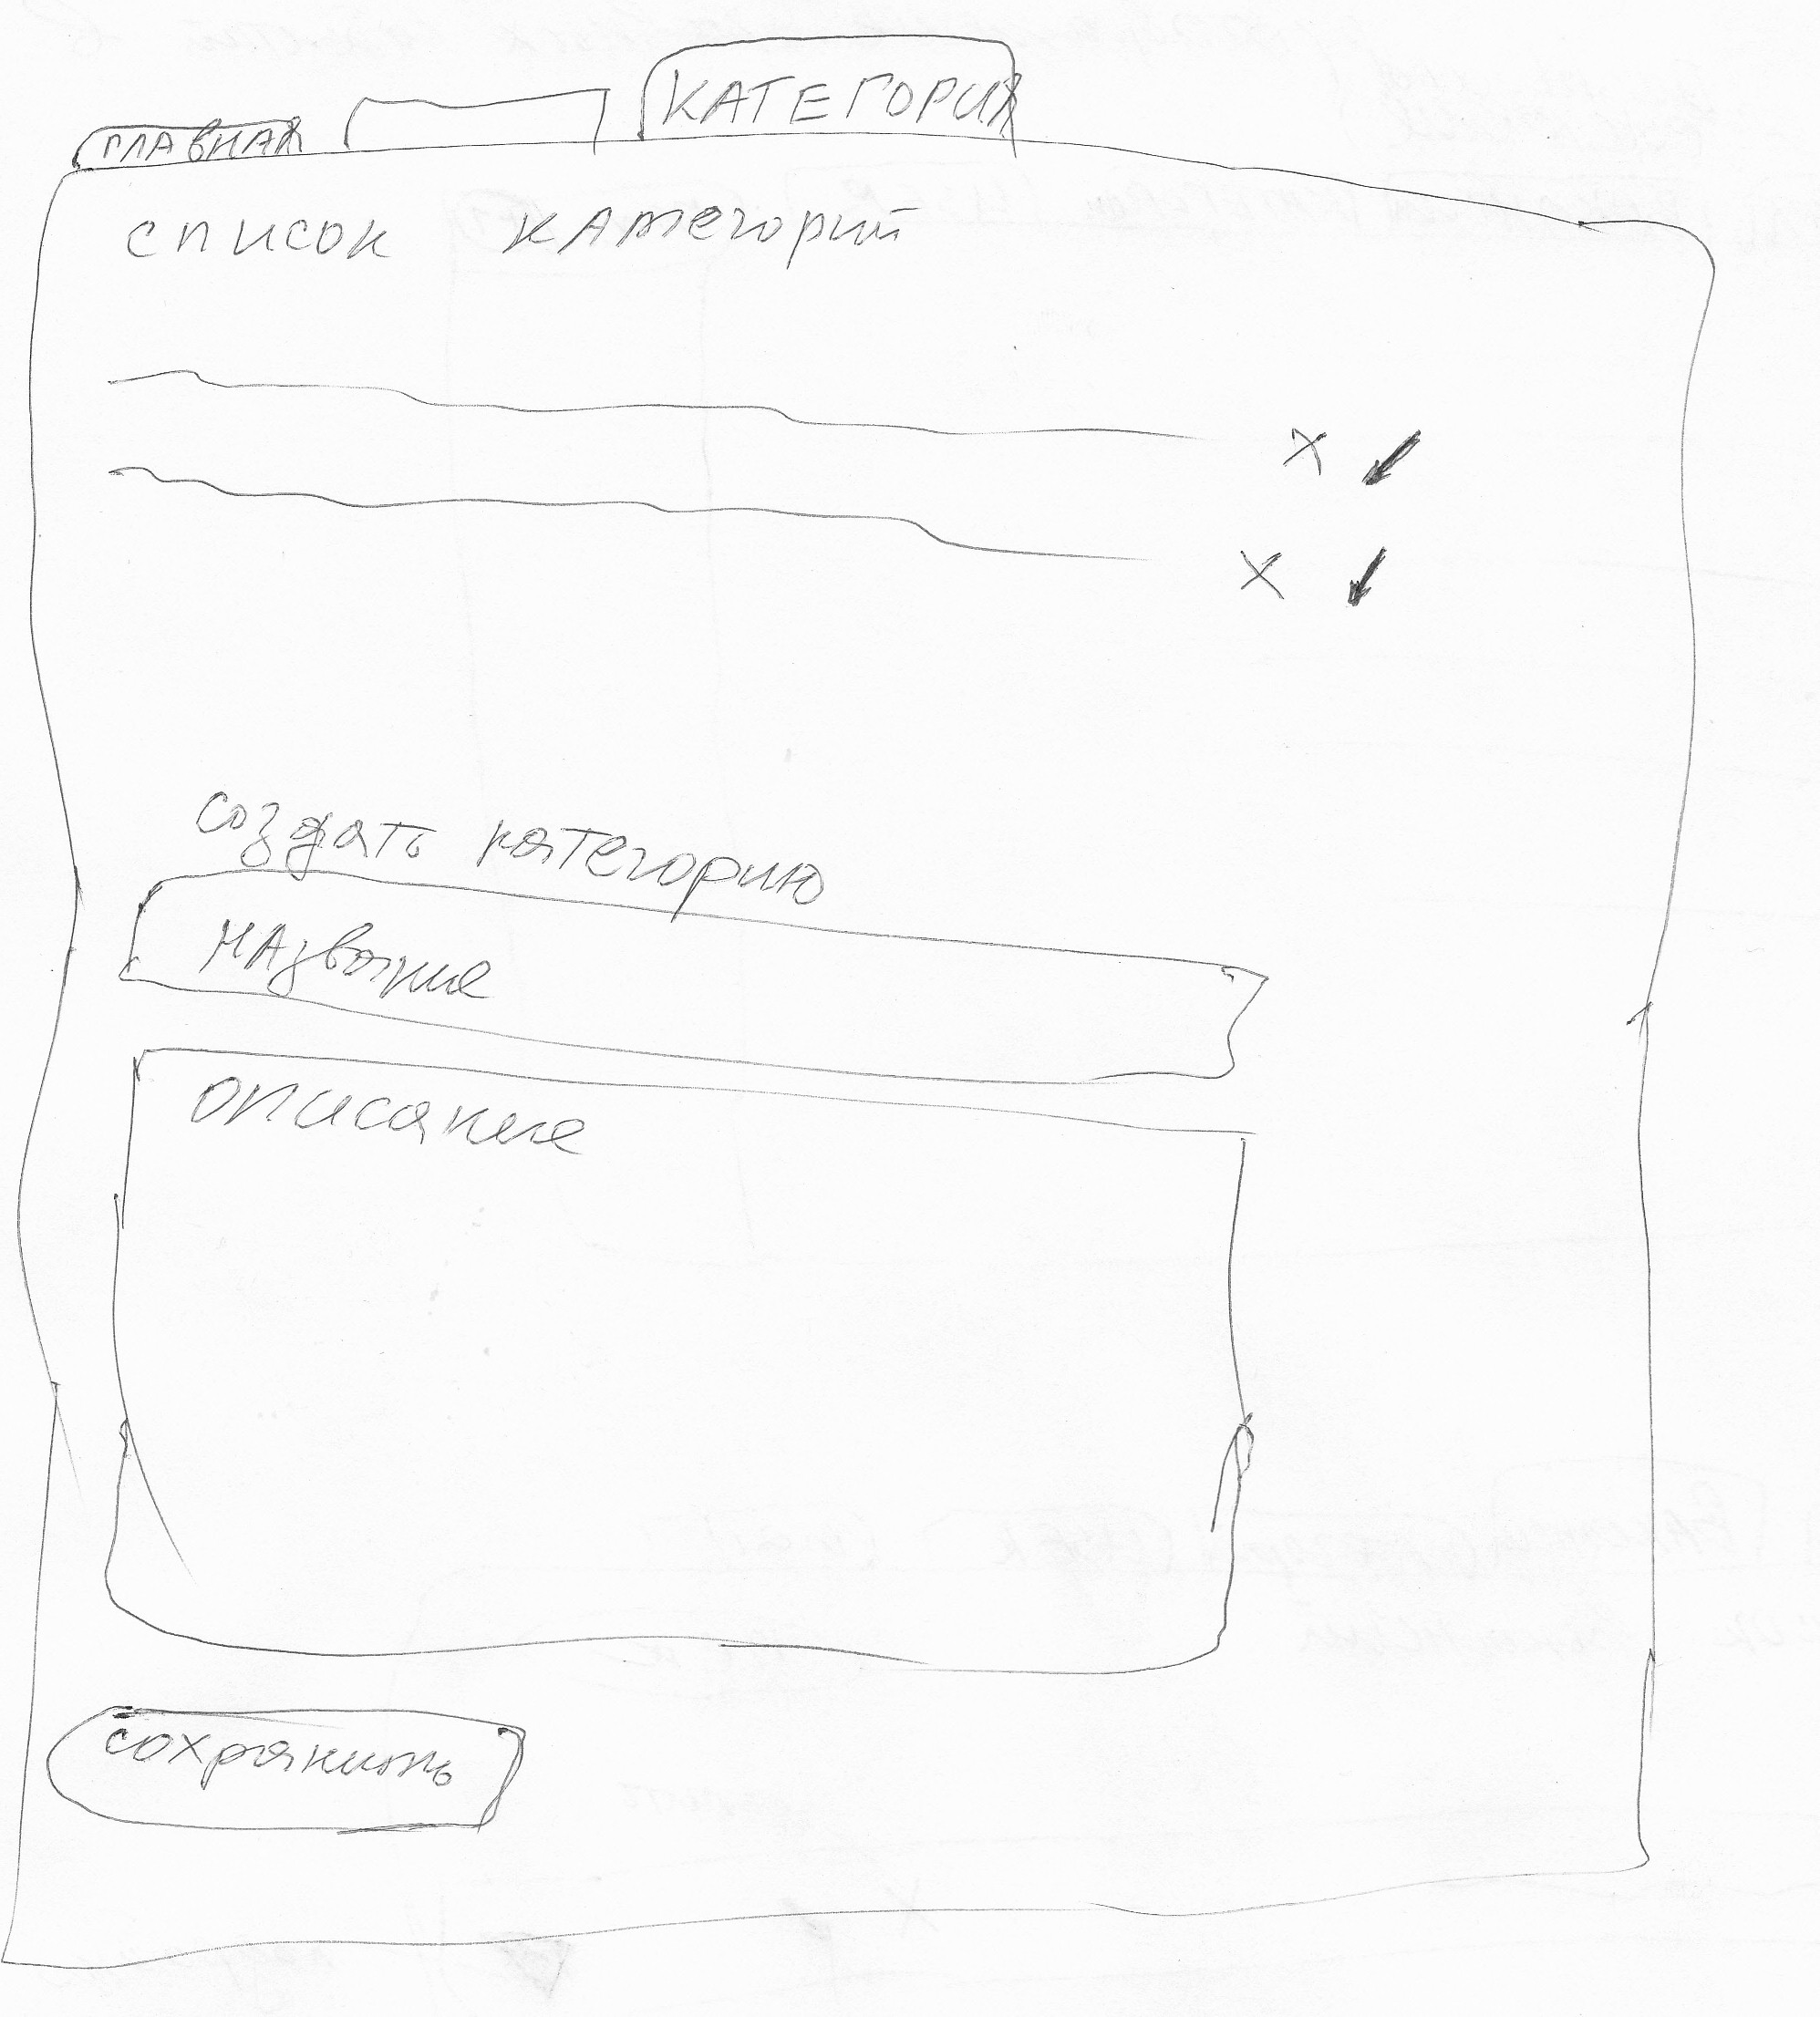 ГЛАВНАЯ
КАТЕГОРИЯ
список категорий
х
х
создать категорию
название
описание
сохранить